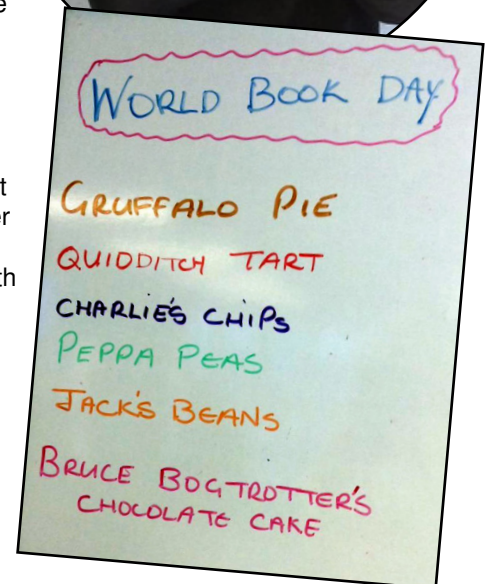 WORLD BOOK DAY
GRUFFALO PIE
QUIDDITCH TART
CHARLIE'S CHIPS
PEPPA PEAS
JACK'S BEANS
BRUCE BOGTROTTER'S
CHOCOLATE CAKE